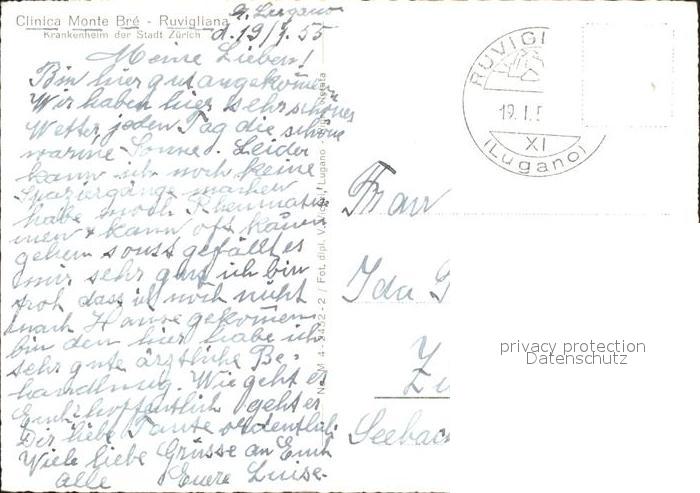 Clinica Monte Bré - Ruvigliana
Krankenheim der Stadt Zürich
Lugano
d. 19/1. 55
Meine Lieben!
Bin hier gut angekommen
Wir haben hier sehr schönes
Wetter, jeden Tag die schöne
warme Sonne. Leider
kann ich noch keine
Spaziergänge machen
habe noch Rheumatis-
men & kann oft kaum
gehen sonst gefällt es
mir sehr gut ich bin
froh dass ich noch nicht
nach Hause gekommen
bin den hier habe ich
sehr gute ärztliche Be-
handlung. Wie geht es
Euch hoffentlich geht es
Dir liebe Tante ordentlich
Viele liebe Grüsse an Euch
alle Euere Luise.
No. M 4-2452-2 / Fot. dipl. Lugano
RUVIGI
19. I. 5
XI
(Lugano)
Frau
Ida
Seebac
privacy protection
Datenschutz